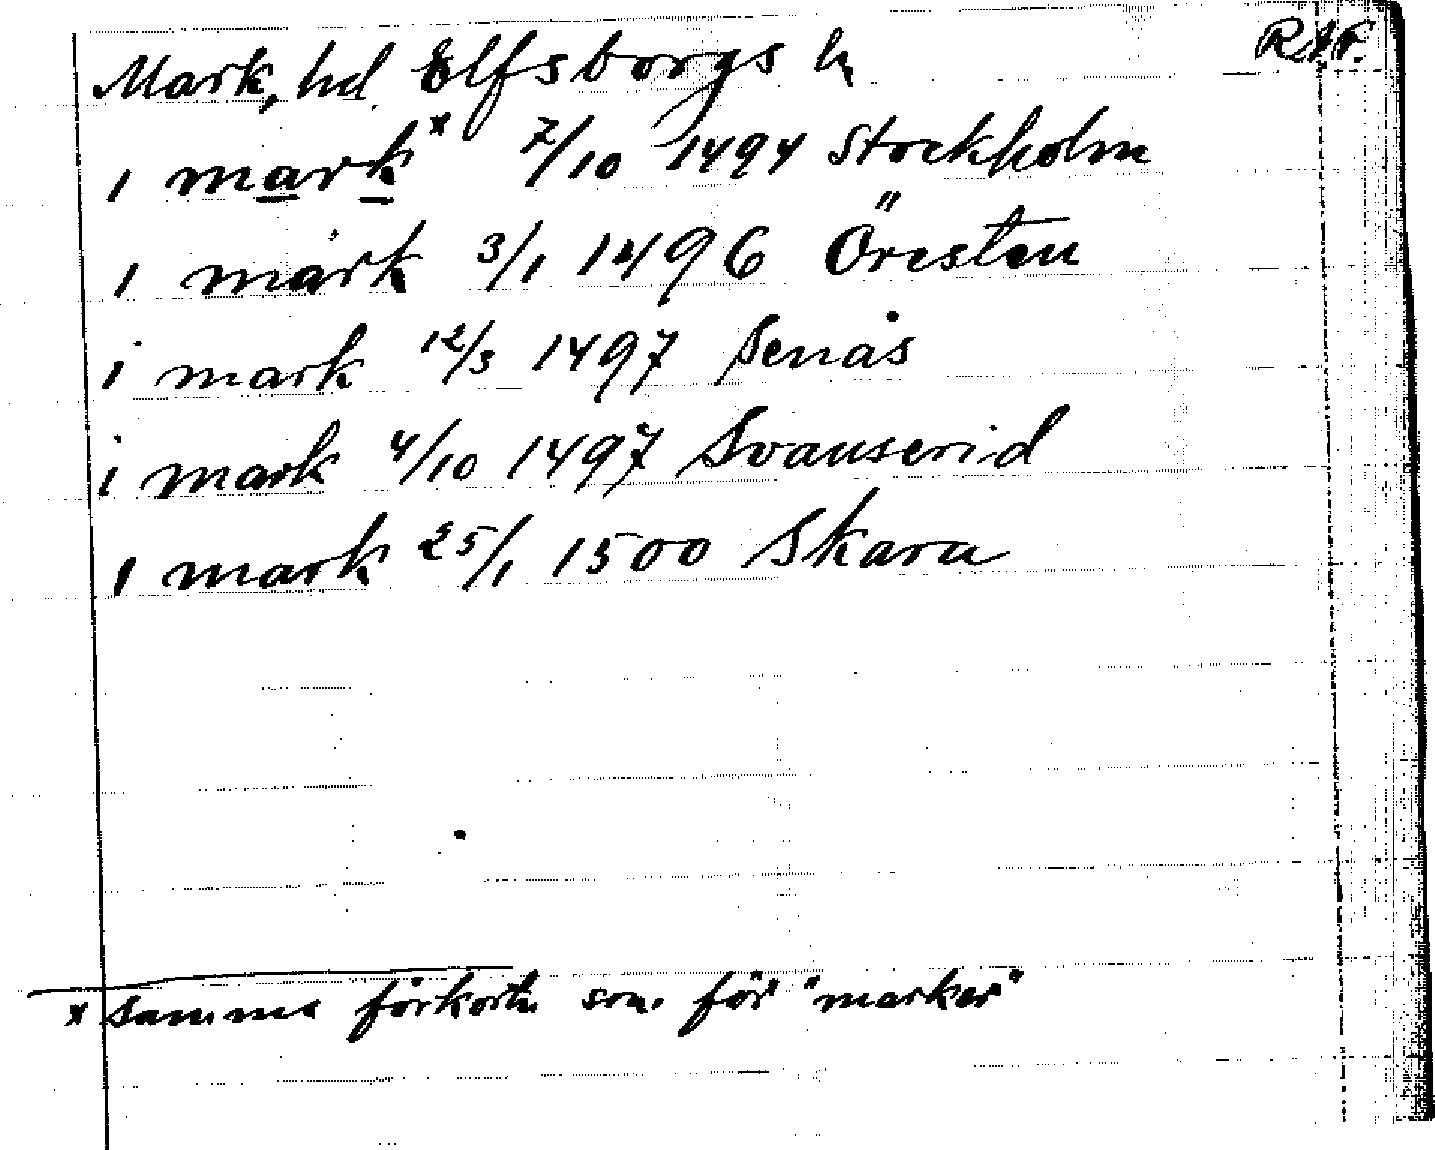 Mark, hd. Elfsborgs l. R.A.F.
i mark x 7/10 1494 Stockholm
i mark 3/1 1496 Öresten
i mark 12/3 1497 Senäs
i mark 4/10 1497 Svanserid
i mark 25/1 1500 Skara
x Samma förkortn. som för "marker"